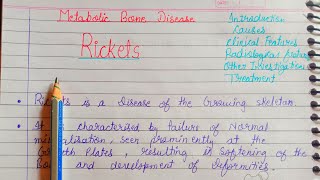 Metabolic Bone Disease
Rickets
Introduction
Causes
Clinical Features
Radiological Features
Other Investigations
Treatment
• Rickets is a Disease of the Growing skeleton.
• It is characterised by Failure of Normal
mineralisation, seen prominently at the
Growth Plates, resulting in softening of the
Bone and development of Deformities.